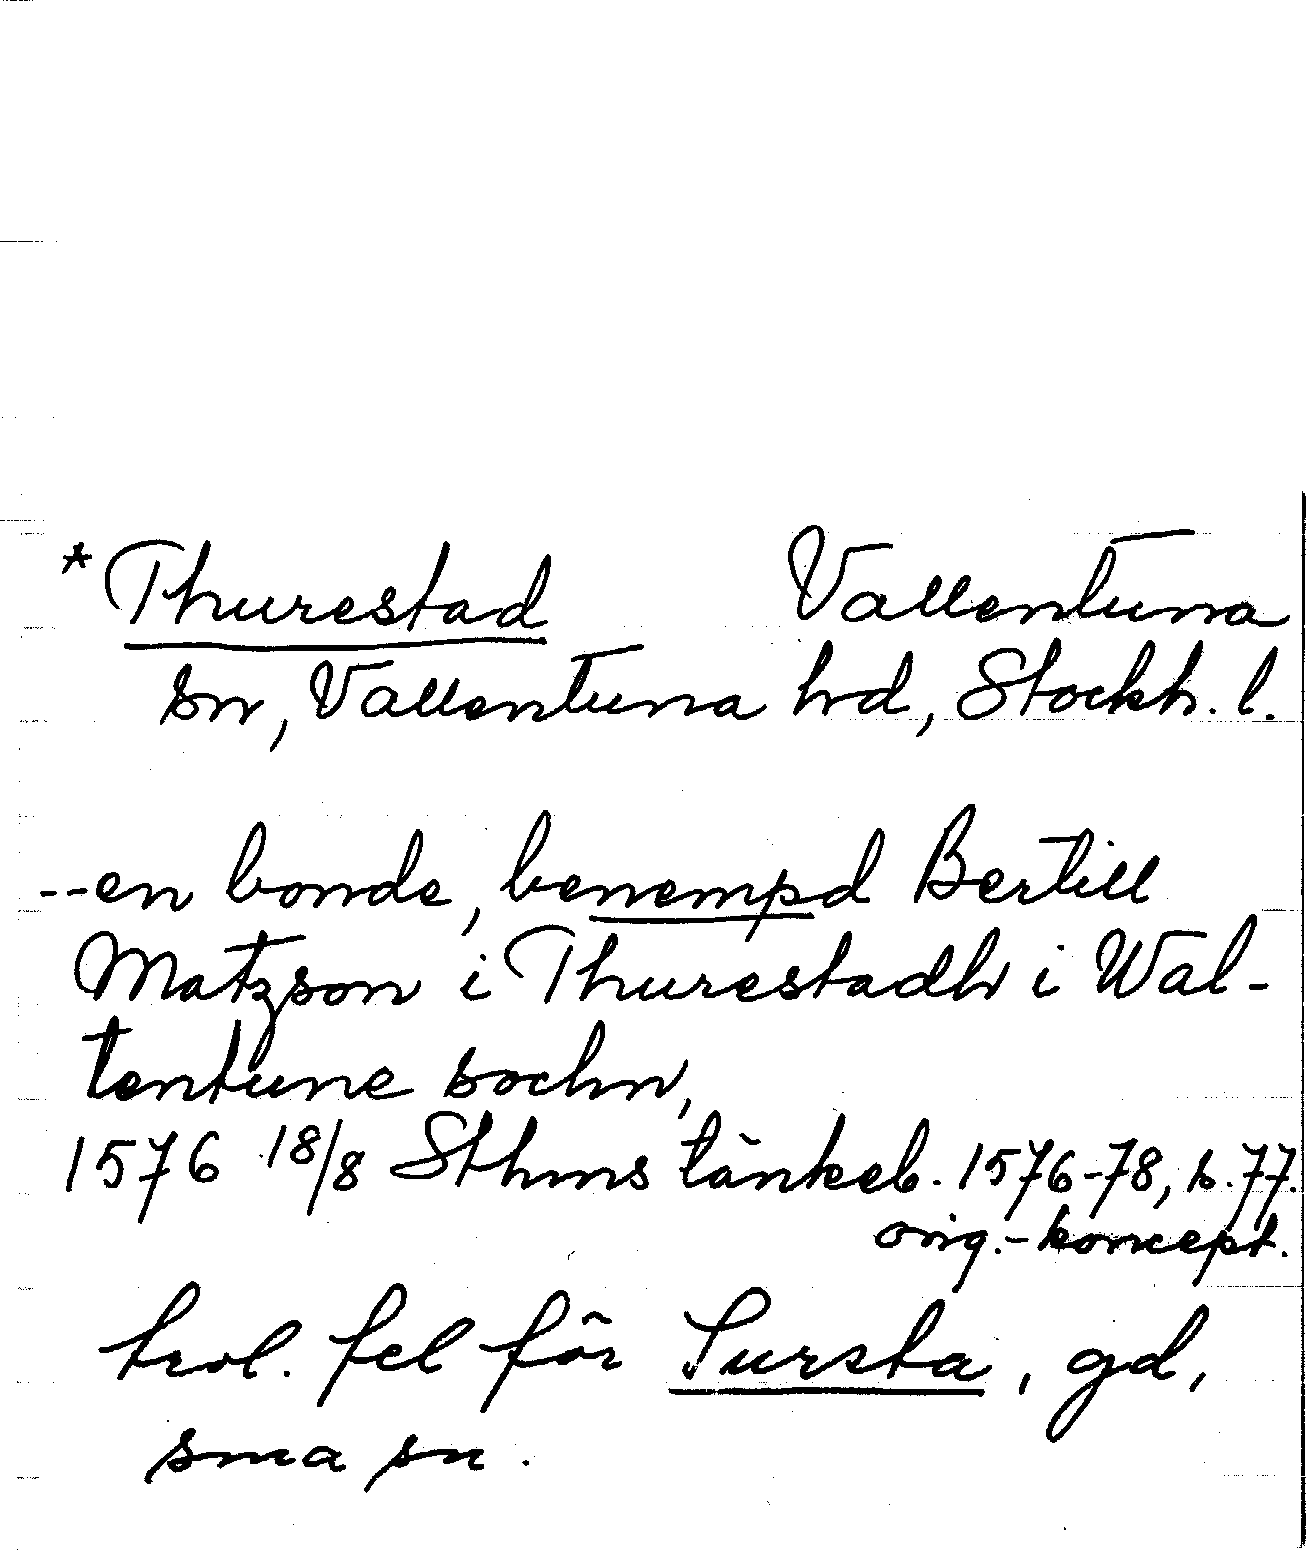 *Thurestad Vallentuna
sn, Vallentuna hd, Stockh. l.
--en bonde, benempd Bertill
Matzson i Thurestadh i Wal-
lentune sochn,
1576 18/8 Sthms tänkeb. 1576-78, s. 77.
orig.-koncept.
trol. fel för Sursta, gd,
sma sn.